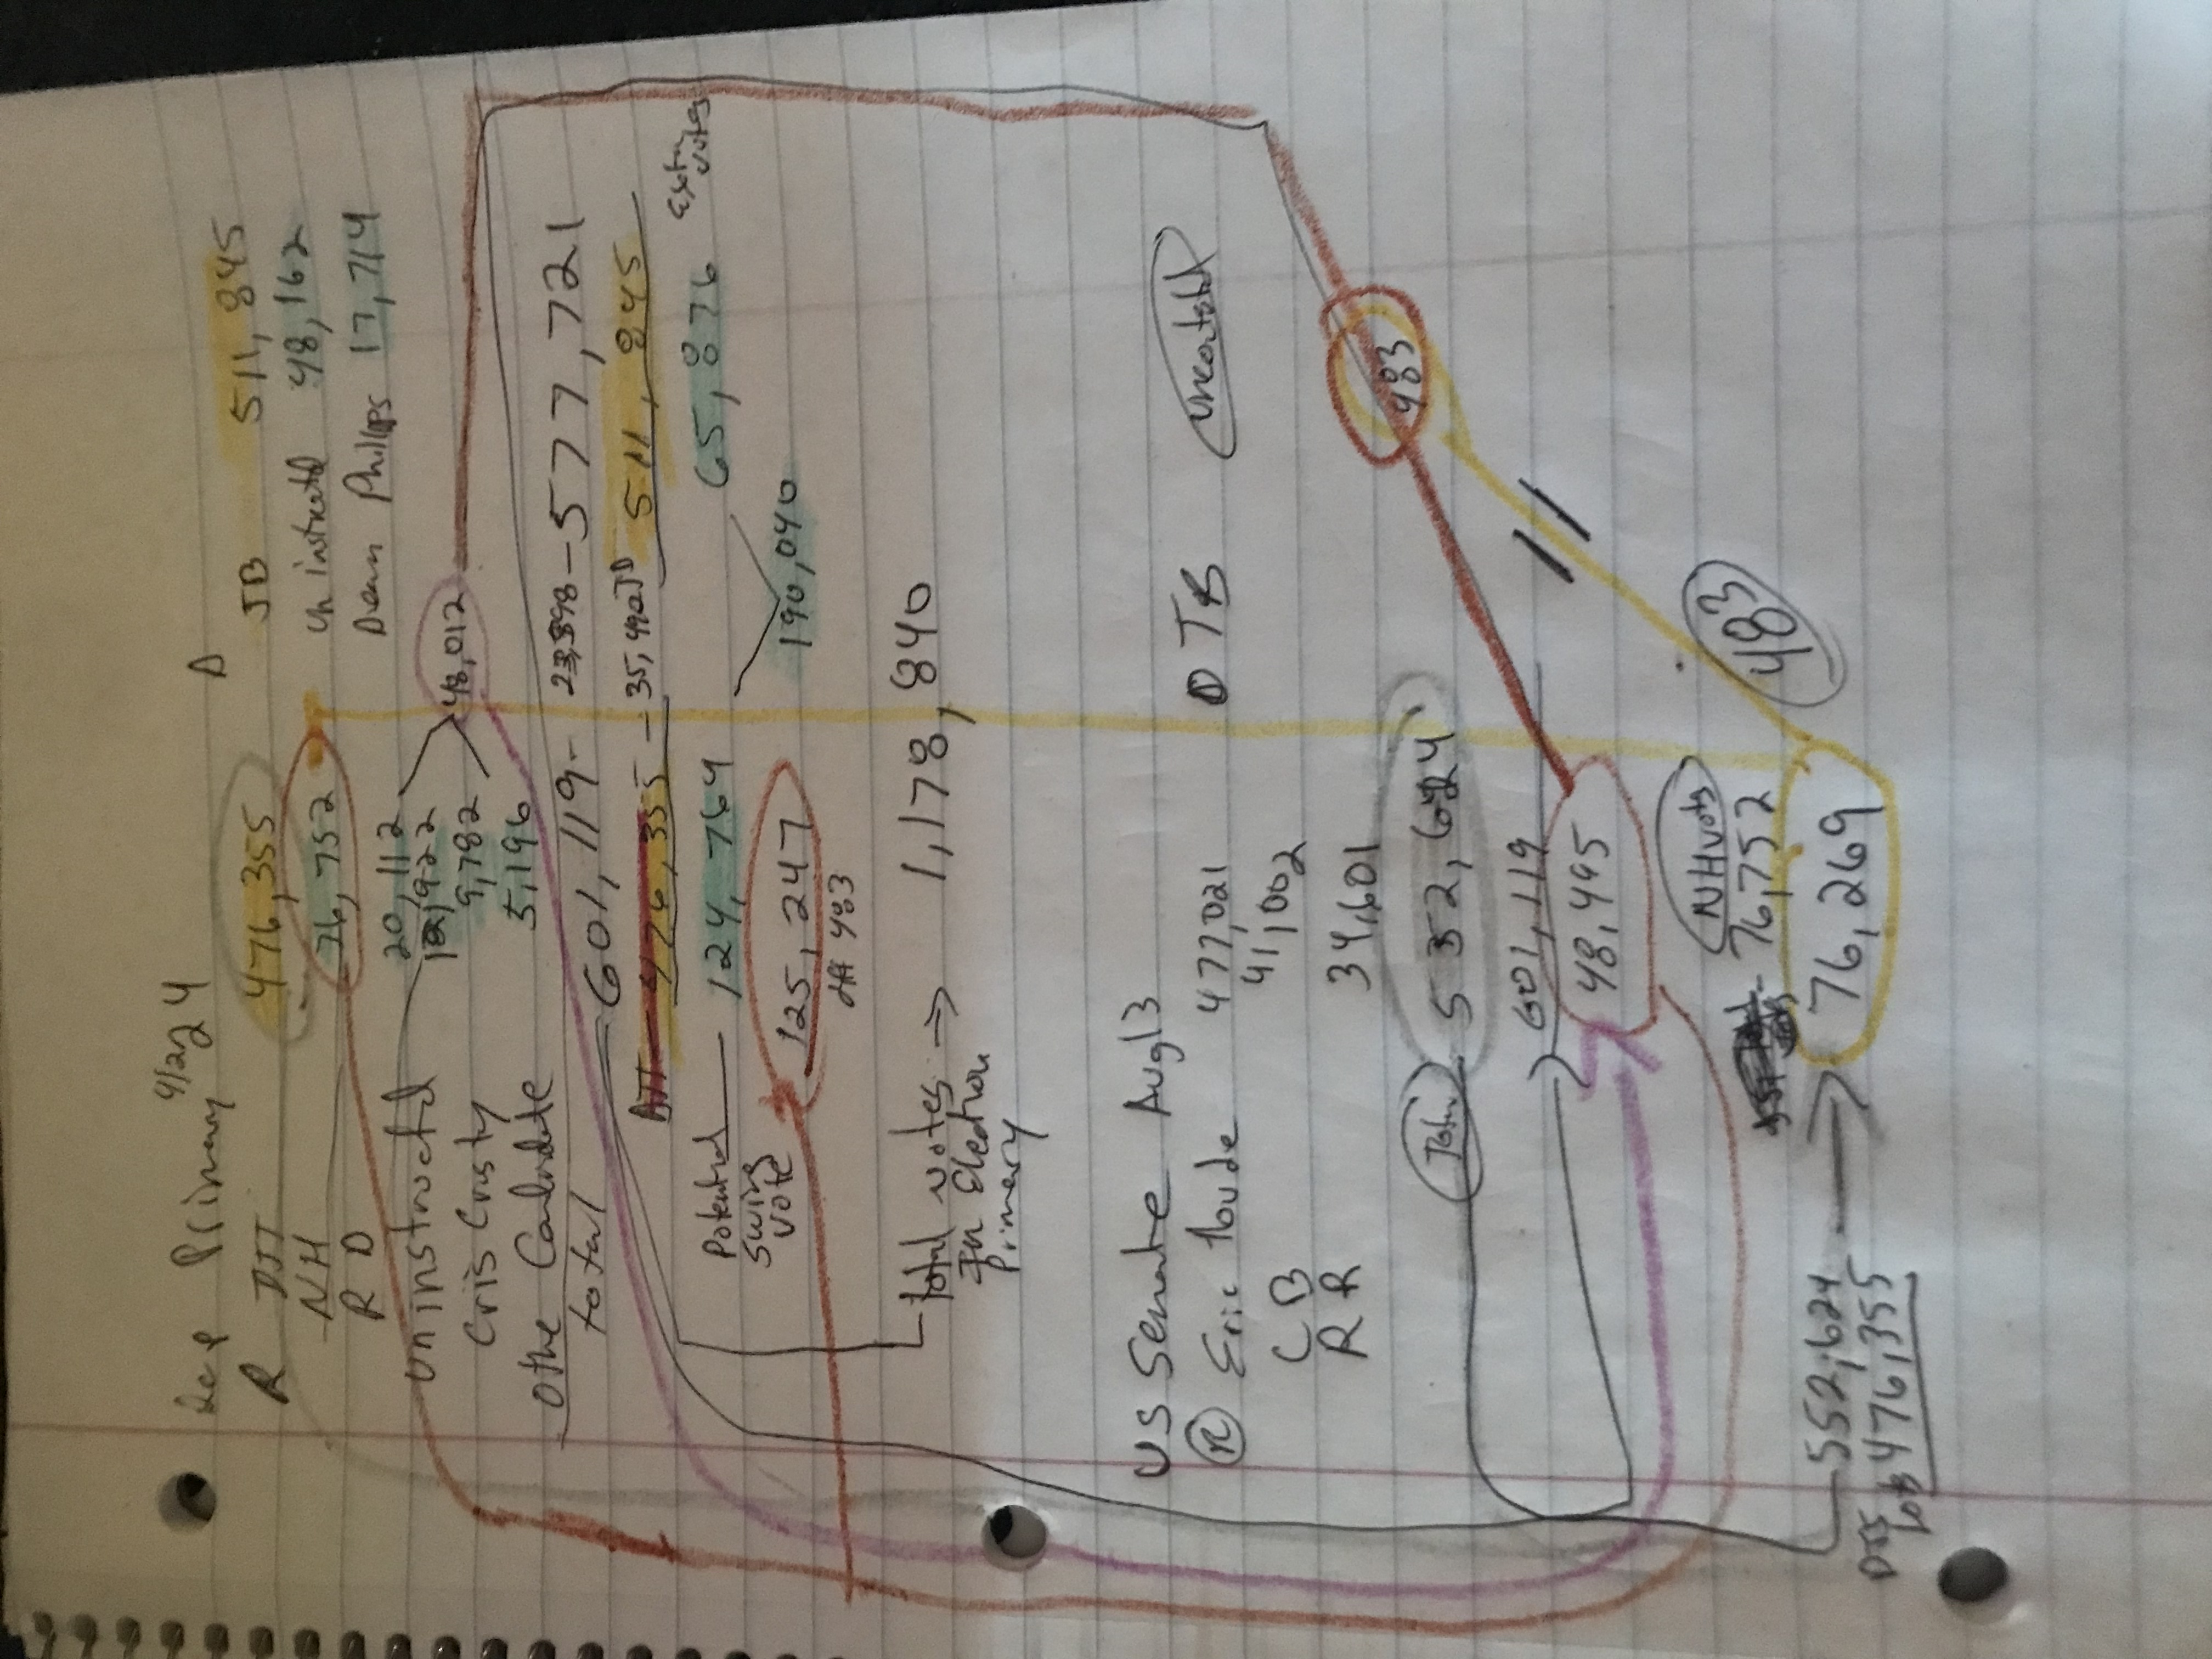 Primary 4/2/24
R D
DJT 476,355 JB 511,845
NH 76,752 uninstructed 48,162
R D 20,112 Dean Phillips 17,714
uninstructed 12,922 48,012
Cris Cristy 9,782
Othe Candidate 5,196
total 601,119 - 23,398 - 577,721
DJT 476,355 - 35,490 JB 511,845
Potential Swing Vote 124,764 65,876 Extra votes
190,040
125,247
diff 483
total votes In Election Primary → 1,178,840
US Senate Aug 13
R Eric Hovde 477,021 D TB Uncontested
CB 41,002
RR 34,601
Total 552,624
601,119
48,495
483
NH Votes
76,752
76,269
483
552,624
DJT 476,355